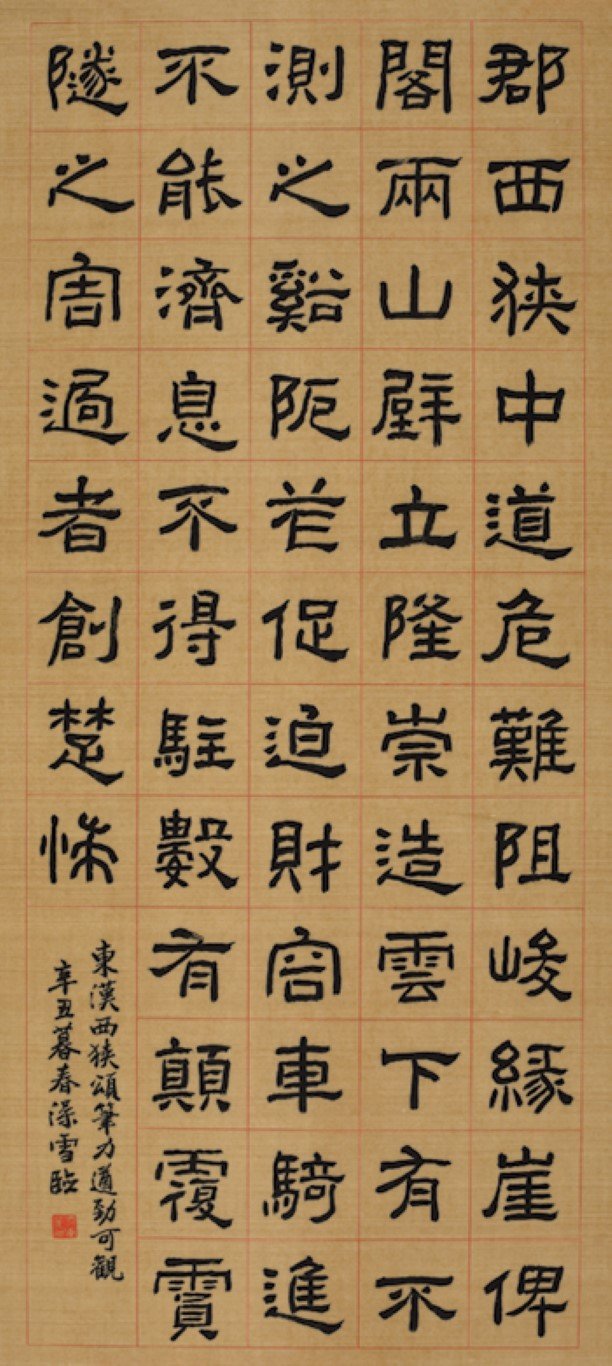 郡西狭中道危難阻峻緣崖俾
閣兩山壁立隆崇造雲下有不
測之谿阨苲促迫財容車騎進
不能濟息不得駐數有顛覆霣
隧之害過者創楚
東漢西狭頌筆力遒勁可觀
辛丑暮春深雪臨